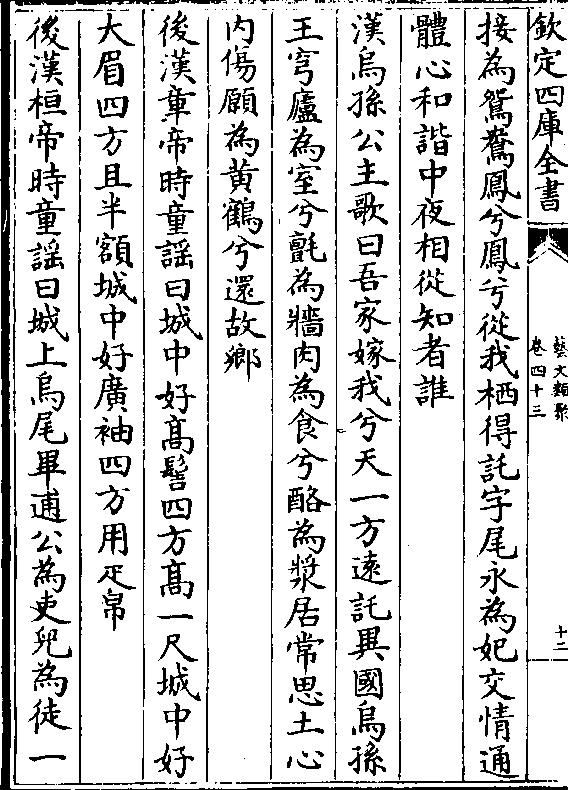 欽定四庫全書
藝文類聚
卷四十三
十二
接為鴛鴦鳳兮鳳兮從我栖得託字尾永為妃交情通
體心和諧中夜相從知者誰
漢烏孫公主歌曰吾家嫁我兮天一方遠託異國烏孫
王穹廬為室兮氈為牆肉為食兮酪為漿居常思土心
內傷願為黃鶴兮還故鄉
後漢章帝時童謡曰城中好髙髻四方髙一尺城中好
大眉四方且半額城中好廣袖四方用疋帛
後漢桓帝時童謡曰城上烏尾畢逋公為吏兒為徒一